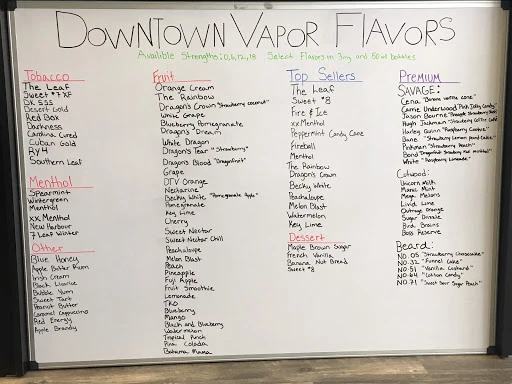 DOWNTOWN VAPOR FLAVORS
Availible Strengths: 0, 6, 12, 18 Select Flavors in 3mg and 50ml bottles
Tobacco
The Leaf
Sweet #7 XF
DX 555
Desert Gold
Red Box
Darkness
Cardinal Cured
Cuban Gold
RY4
Southern Leaf
Menthol
Spearmint
Wintergreen
Menthol
xx Menthol
New Harbour
7 Leaf Winter
Other
Blue Honey
Apple Butter Rum
Irish Cream
Black Licorice
Bubble Yum
Sweet Tart
Peanut Butter
Caramel Cappuccino
Red Energy
Apple Brandy
Fruit
Orange Cream
The Rainbow
Dragon's Crown "Strawberry coconut"
White Grape
Blueberry Pomegranate
Dragon's Dream
White Dragon
Dragon's Tear "Strawberry"
Dragon's Blood "Dragonfruit"
Grape
DTV Orange
Nectarine
Becky White "Pomegranate Apple"
Pomegranate
Key Lime
Cherry
Sweet Nectar
Sweet Nectar Chill
Peachaloupe
Melon Blast
Peach
Pineapple
Fuji Apple
Fruit Smoothie
Lemonade
TKO
Blueberry
Mango
Black and Blueberry
Watermelon
Tropical Punch
Pina Colada
Bahama Mama
Top Sellers
The Leaf
Sweet #8
Fire & Ice
xx Menthol
Peppermint Candy Cane
Fireball
Menthol
The Rainbow
Dragon's Crown
Becky White
Peachaloupe
Melon Blast
Watermelon
Key Lime
Dessert
Maple Brown Sugar
French Vanilla
Banana Nut Bread
Sweet #8
Premium
SAVAGE:
Cena "Banana vanilla cone"
Carrie Underwood "Pink Jolley Candy"
Jason Bourne "Pineapple Strawberry Melon"
Hugh Jackman "Strawberry Coffee Cake"
Harley Quinn "Raspberry Cookie"
Bane "Strawberry Lemon pound Cake"
Pinkman "Strawberry Peach"
Bond "Dragonfruit Strawberry Kiwi menthol"
White "Raspberry Limeade"
Cutwood:
Unicorn Milk
Manic Mint
Mega Melons
Livid Lime
Outrage Orange
Sugar Drizzle
Bird Brains
Boss Reserve
Beard:
NO. 05 "Strawberry Cheesecake"
NO. 32 "Funnel Cake"
NO. 51 "Vanilla Custard"
NO. 64 "Cotton Candy"
NO. 71 "Sweet Sour Sugar Peach"